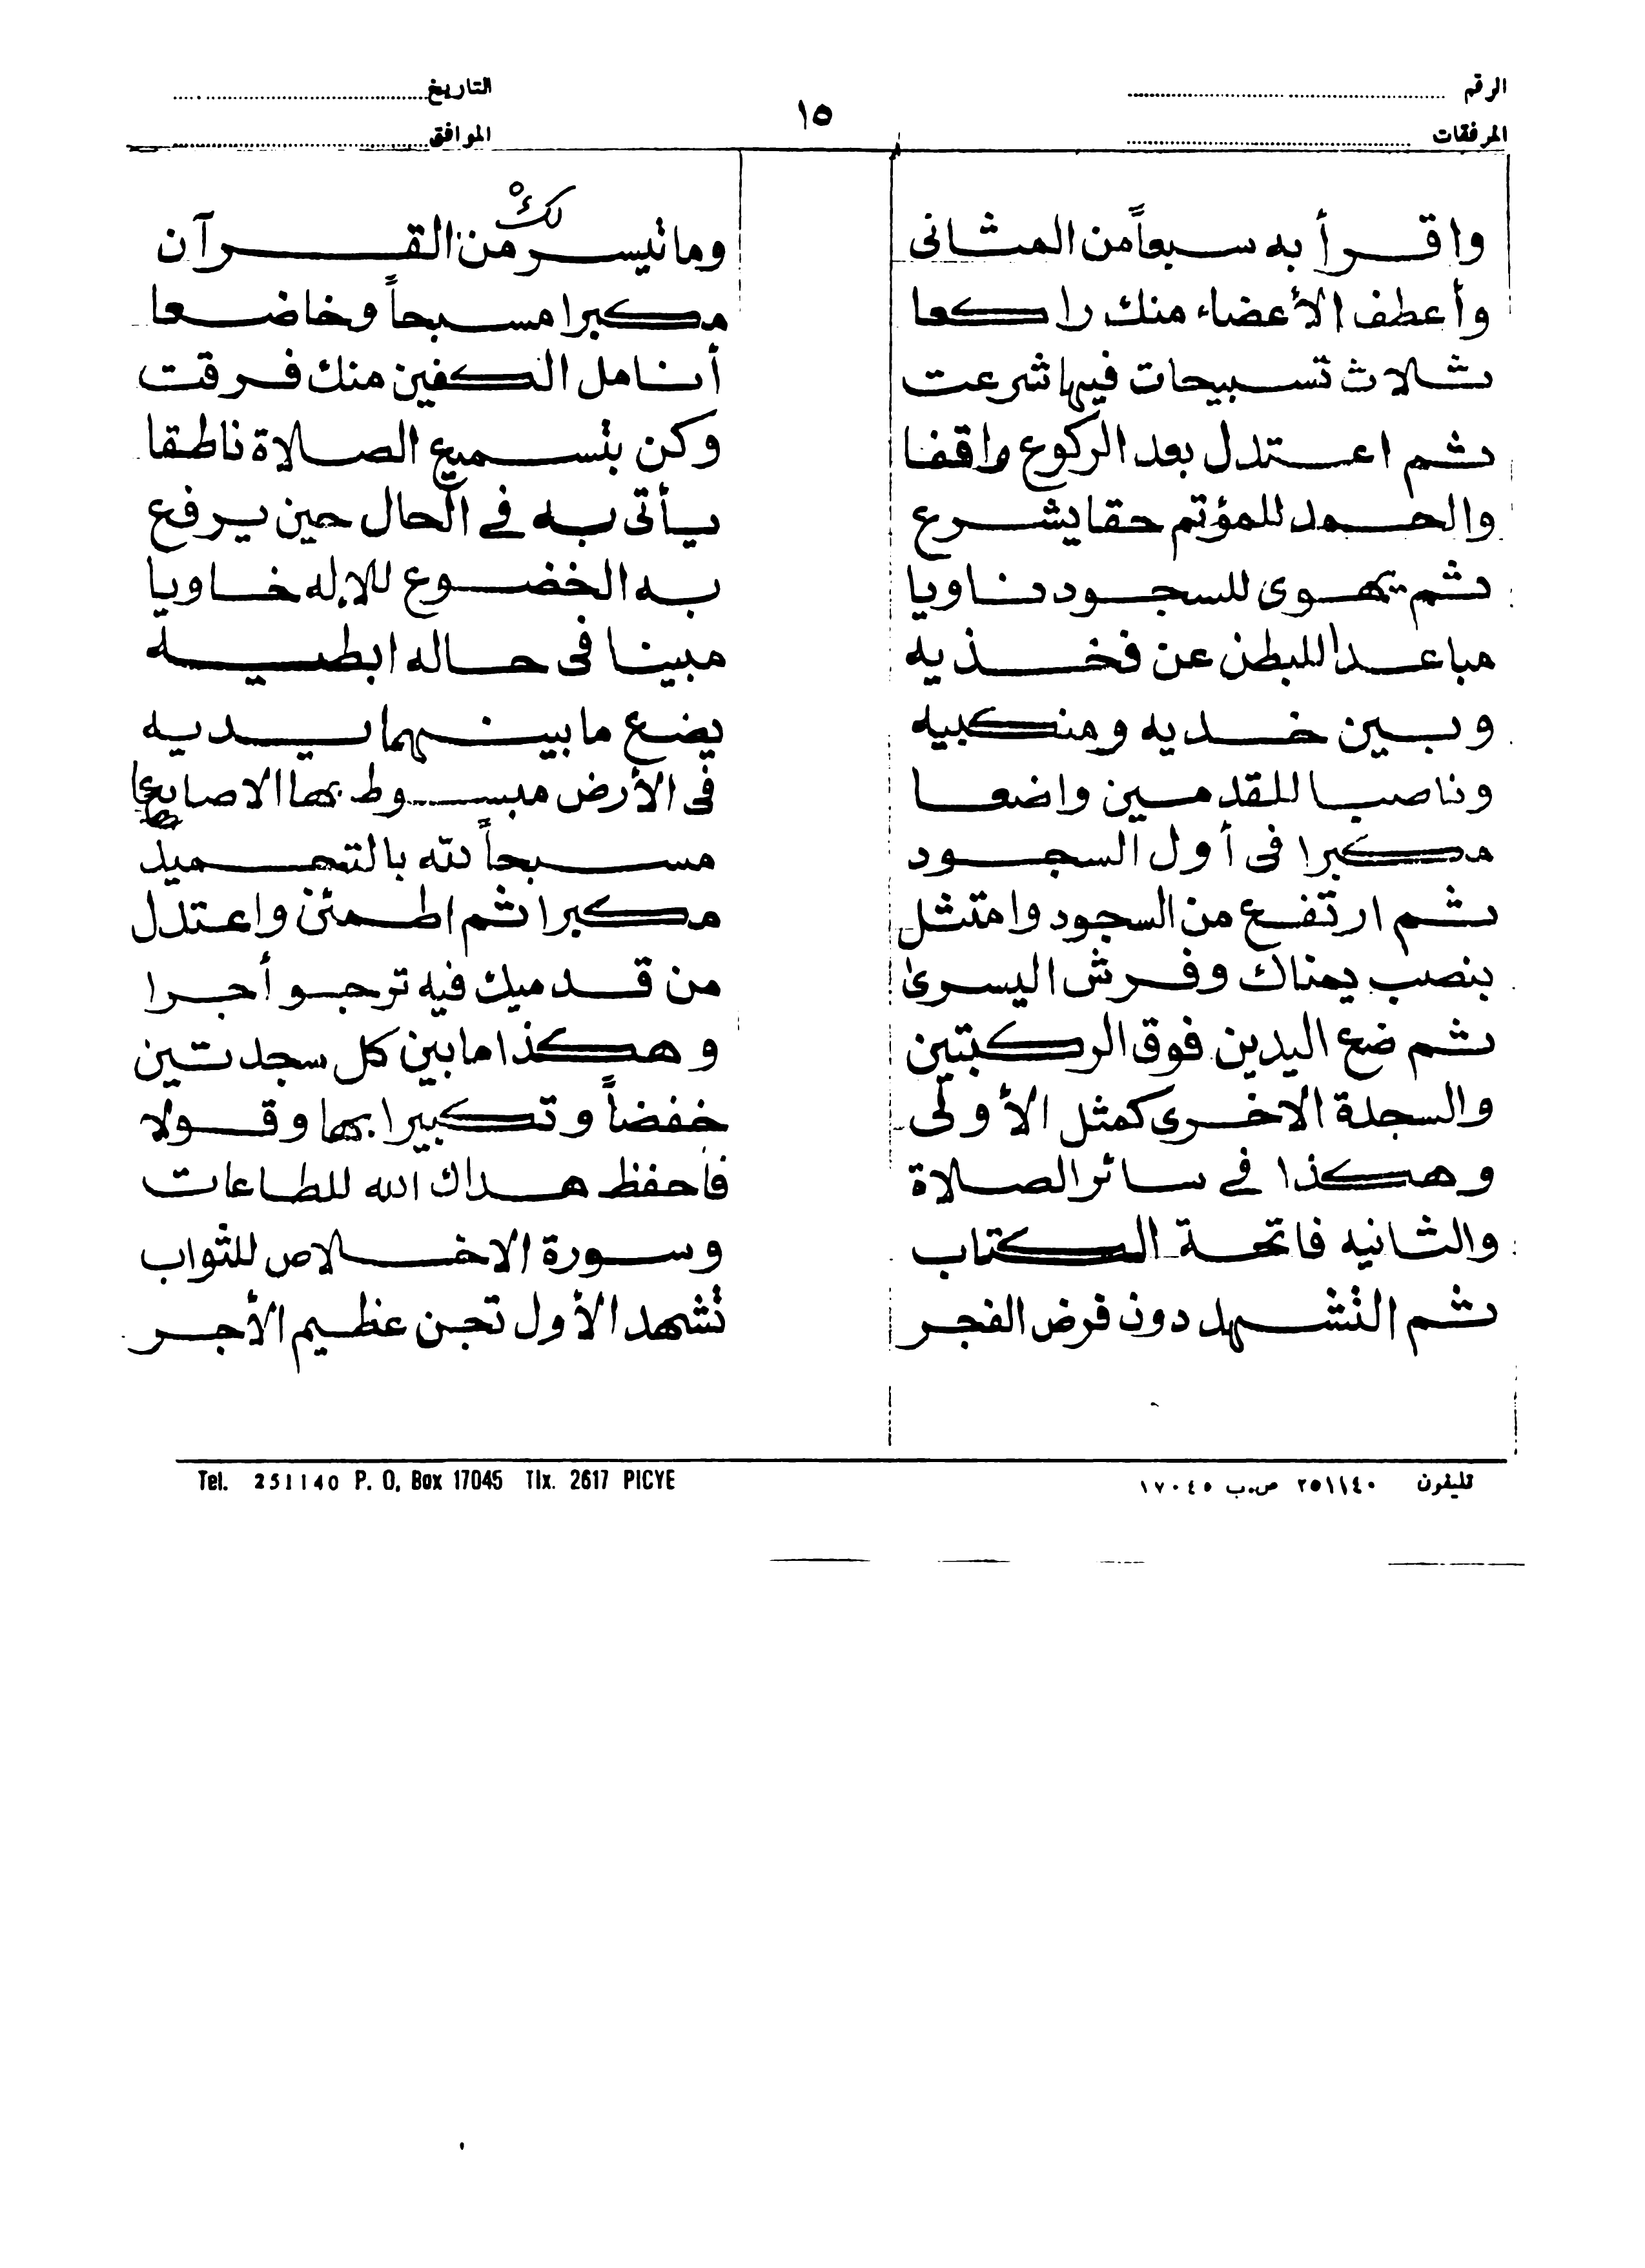 الرقم ........ التاريخ ........
١٥
المرفقات ........ الموافق ........
واقرأ به سبعاً من المثانى وما تيسر لكْ من القرآن
وأعطف الأعضاء منك راكعا مكبرا مسبحاً وخاضعا
ثلاث تسبيحات فيها شرعت أنامل الكفين منك فرقت
ثم اعتدل بعد الركوع واقفا وكن بتسميع الصلاة ناطقا
والحمد للمؤتم حقا يشرع يأتى به في الحال حين يرفع
ثم يهوى للسجود ناويا به الخضوع للإله خاويا
مباعدا للبطن عن فخذيه مبينا فى حاله ابطيه
وبين خديه ومنكبيه يضع ما بينهما يديه
وناصبا للقدمين واضعا فى الأرض مبسوط بها الاصابعا
مكبرا فى أول السجود مسبحاً لله بالتحميد
ثم ارتفع من السجود وامتثل مكبرا ثم اطمئن واعتدل
بنصب يمناك وفرش اليسرى من قدميك فيه ترجو أجرا
ثم ضع اليدين فوق الركبتين وهكذا ما بين كل سجدتين
والسجدة الاخرى كمثل الأولى خفضاً وتكبيرا بها وقولا
وهكذا في سائر الصلاة فاحفظ هداك الله للطاعات
والثانيه فاتحة الكتاب وسورة الاخلاص للثواب
ثم التشهد دون فرض الفجر تشهد الأول تحن عظيم الأجر
تليفون ٢٥١١٤٠ ص.ب ١٧٠٤٥ Tel. 251140 P. O, Box 17045 Tlx. 2617 PICYE